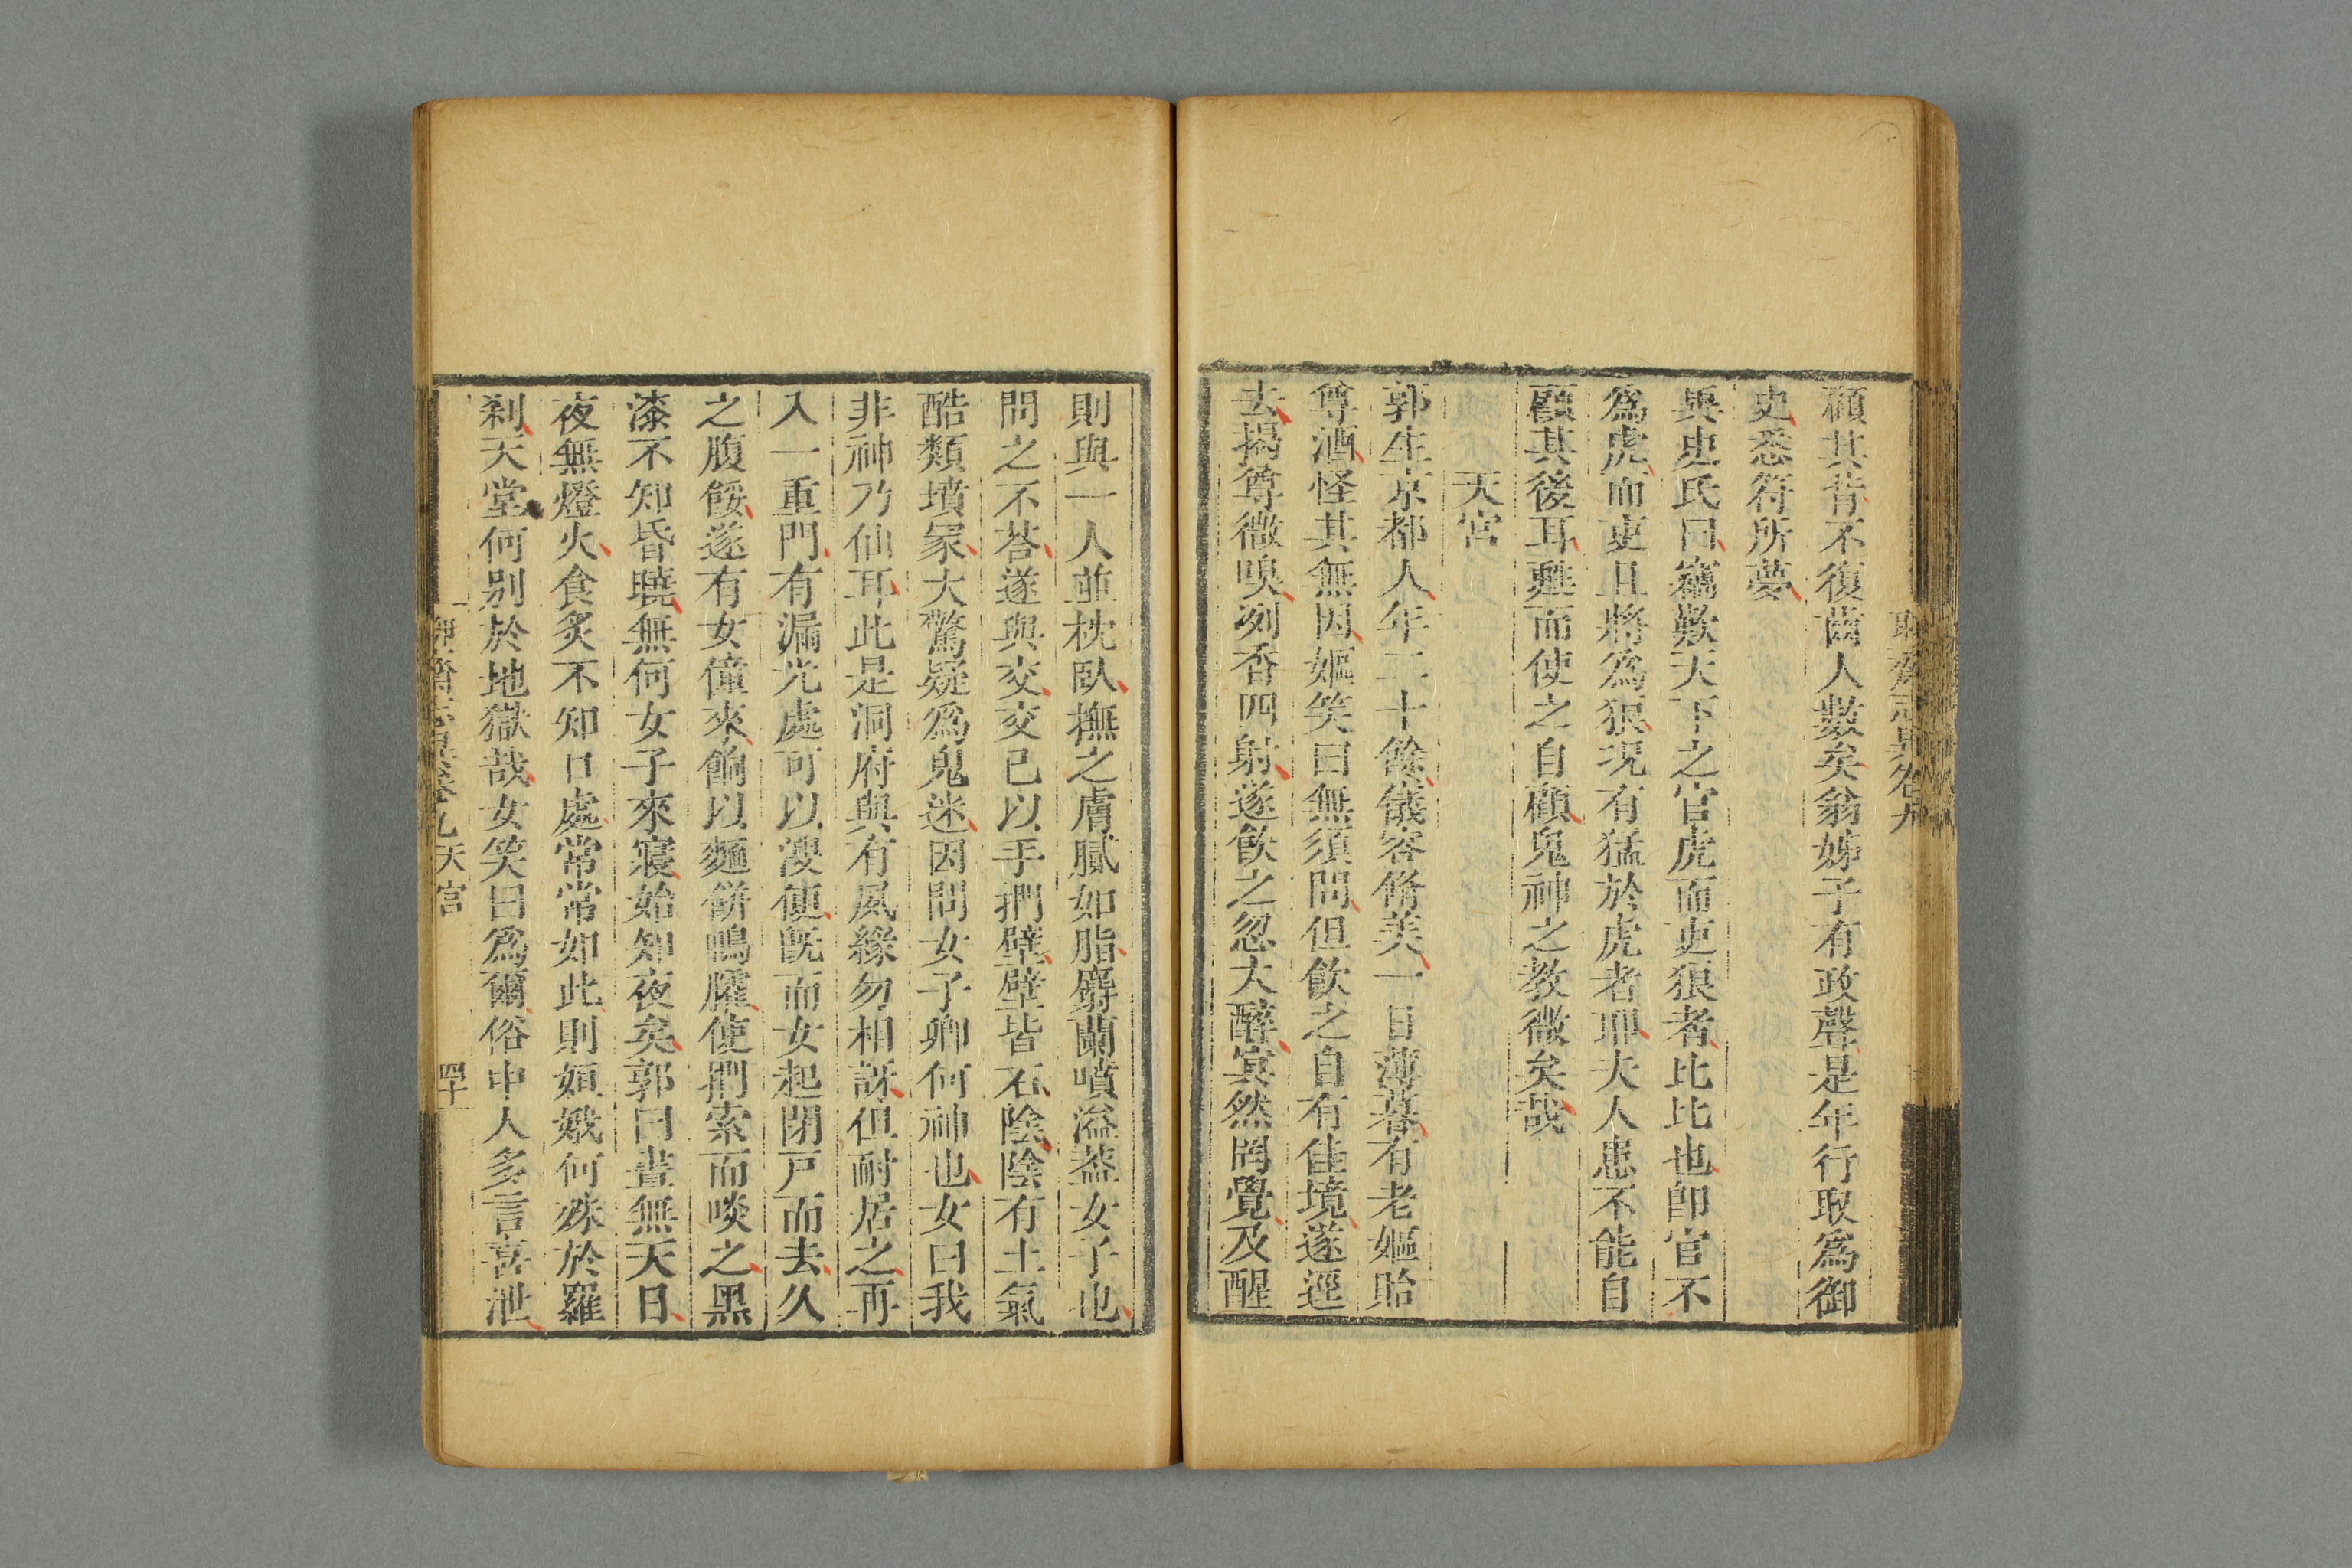 聊齋志異卷九
顧其昔不復齒人數矣翁姊子有政聲是年行取爲御
史悉符所夢
異史氏曰竊歎天下之官虎而吏狼者比比也卽官不
爲虎而吏且將爲狼况有猛於虎者耶夫人患不能自
顧其後耳甦而使之自顧鬼神之教微矣哉
天宮
郭生京都人年二十餘儀容脩美一日薄暮有老嫗貽
尊酒怪其無因嫗笑曰無須問但飲之自有佳境遂逕
去揭尊微嗅冽香四射遂飲之忽大醉冥然罔覺及醒
則與一人並枕臥撫之膚膩如脂麝蘭噴溢葢女子也
問之不荅遂與交交已以手捫壁壁皆石陰陰有土氣
酷類墳冢大驚疑爲鬼迷因問女子卿何神也女曰我
非神乃仙耳此是洞府與有夙緣勿相訝但耐居之再
入一重門有漏光處可以溲便旣而女起閉戸而去久
之腹餒遂有女僮來餉以麵餅鴨臛使捫索而啖之黑
漆不知昏曉無何女子來寢始知夜矣郭曰晝無天日
夜無燈火食炙不知口處常常如此則姮娥何殊於羅
刹天堂何别於地獄哉女笑曰爲爾俗中人多言喜泄
聊齋志異卷九 天宮 四十